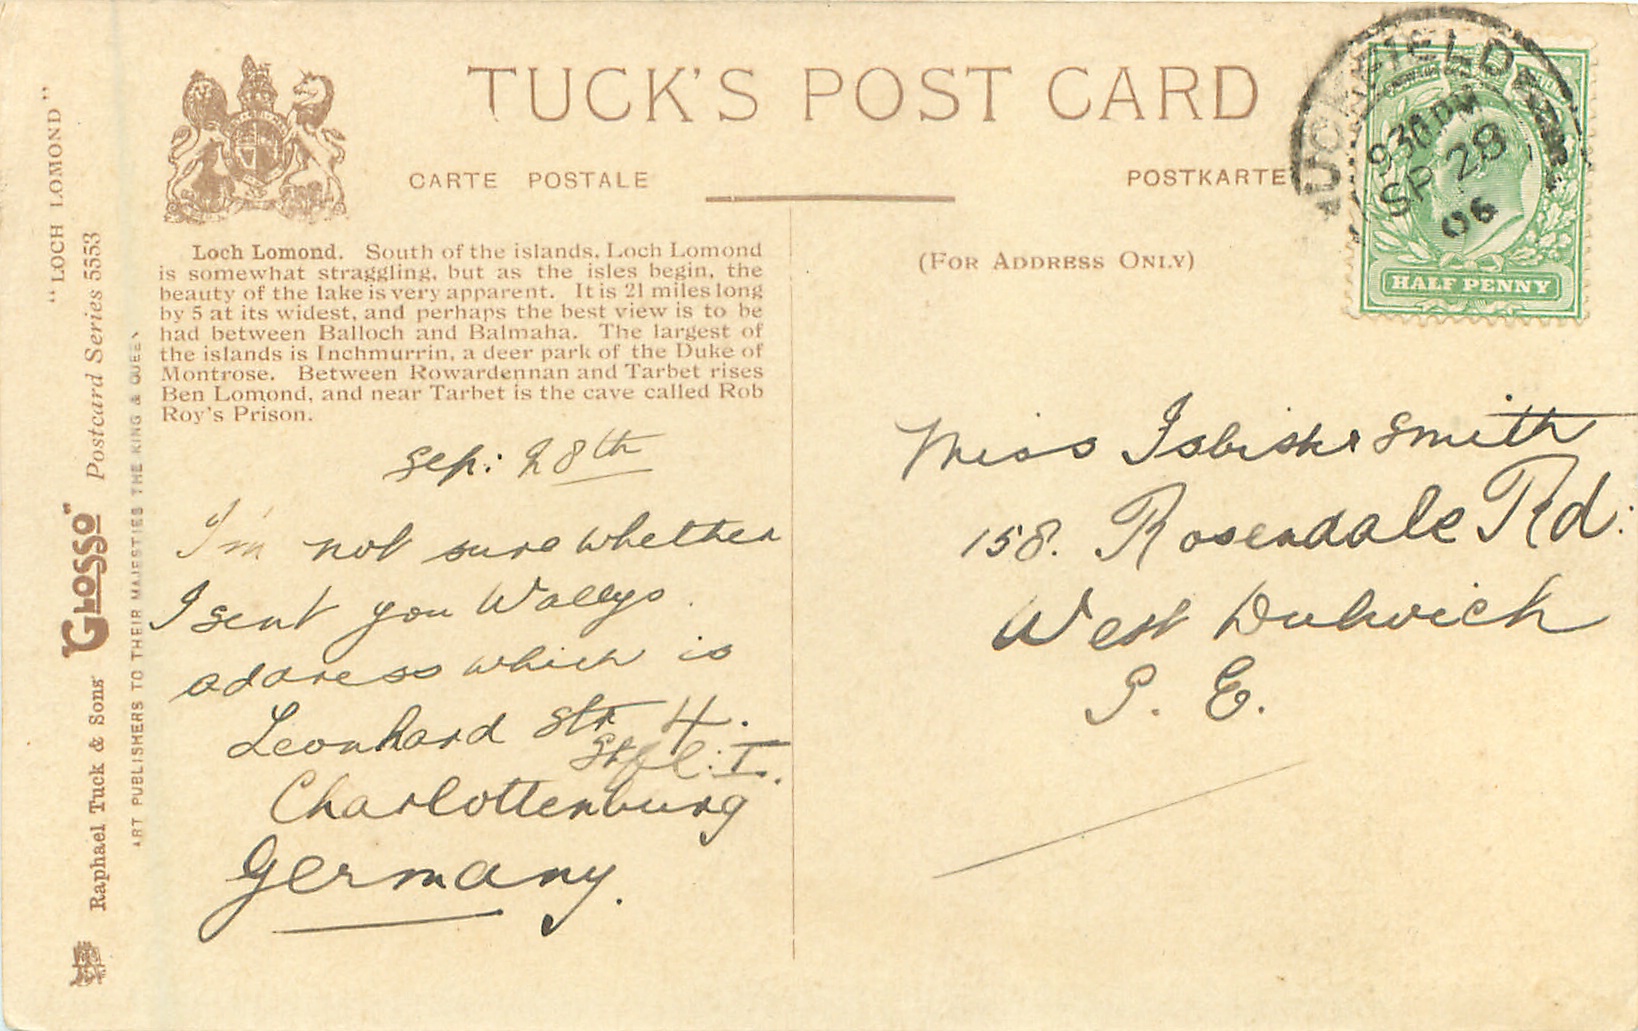 TUCK'S POST CARD
CARTE POSTALE
POSTKARTE
(FOR ADDRESS ONLY)
"LOCH LOMOND"
Postcard Series 5553
"GLOSSO"
Raphael Tuck & Sons'
ART PUBLISHERS TO THEIR MAJESTIES THE KING & QUEEN
Loch Lomond. South of the islands, Loch Lomond
is somewhat straggling, but as the isles begin, the
beauty of the lake is very apparent. It is 21 miles long
by 5 at its widest, and perhaps the best view is to be
had between Balloch and Balmaha. The largest of
the islands is Inchmurrin, a deer park of the Duke of
Montrose. Between Rowardennan and Tarbet rises
Ben Lomond, and near Tarbet is the cave called Rob
Roy's Prison.
Sep: 28th
I'm not sure whether
I sent you Wallys
address which is
Leonhard Str 4.
I.
Charlottenburg
Germany.
Miss Smith
158. Rosendale Rd:
West Dulwich
S. E.
UCKFIELD
9 30 PM
SP 28
06
HALF PENNY